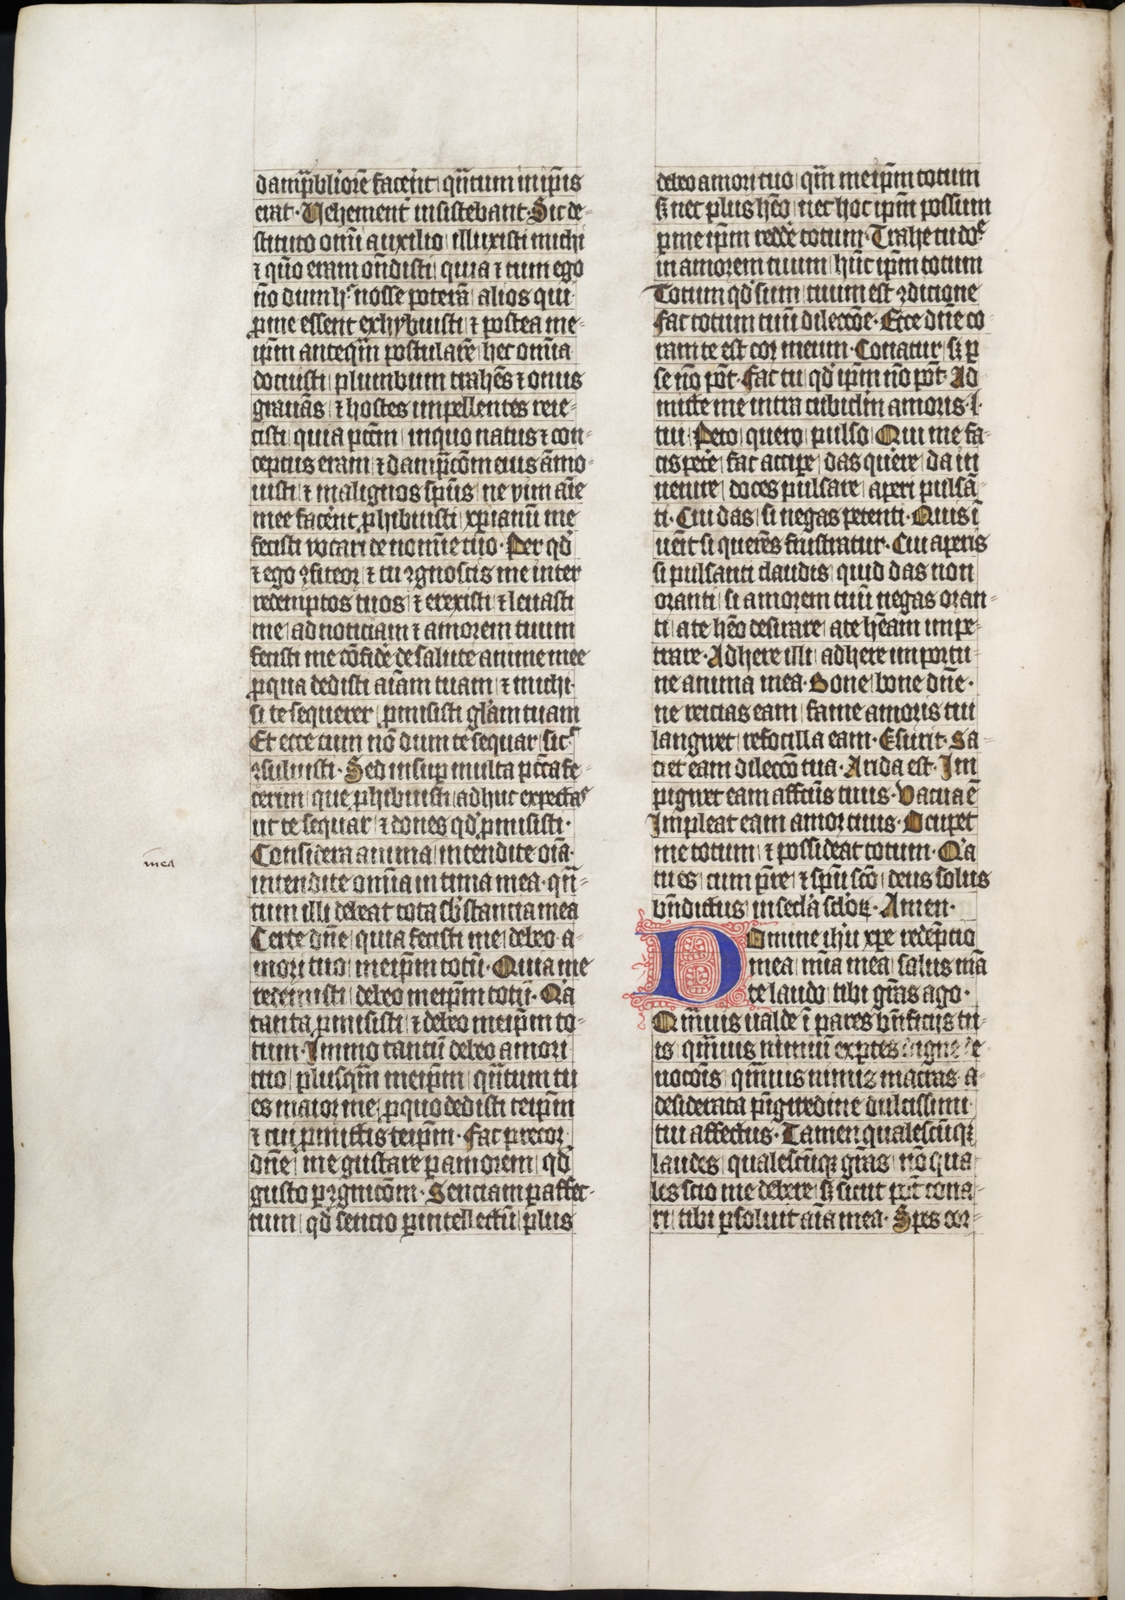 dampnbiliorē facerēt qn̄tum in ip̄is
erat· Vehement᷑ insistebant· Sic de-
stituto om̄i auxilio illuxisti michi
⁊ qn̄o eram on̄disti quia ⁊ tum ego
n̄o dum h̄ nosse poterā alios qui
ꝓ me essent exhybuisti ⁊ postea me-
ip̄m anteqm̄ postularē hec om̄ia
docuisti plumbum trahēs ⁊ onus
grauās ⁊ hostes impellentes reie-
cisti quia pctm̄ in quo natus ⁊ con-
ceptus eram ⁊ dampn̄cōm eius āmo-
uisti ⁊ malignos sp̄us ne vim aīe
mee facerēt ꝓhibuisti xp̄ianū me
fecisti vocari de nomīe tuo· Per qd̄
⁊ ego ꝯfiteor ⁊ tu ꝯgnoscis me inter
redemptos tuos ⁊ erexisti ⁊ leuasti
me ad noticiam ⁊ amorem tuum
fecisti me cōfidē de salute anime mee
ꝓ qua dedisti aīam tuam ⁊ michi
si te sequerer ꝓmisisti gl̄am tuam
Et ecce cum nō dum te sequar sic᷑
ꝯsuluisti· Sed insuꝑ multa pcc̄a fe-
cerim que ꝓhibuisti adhuc expectas
ut te sequar ⁊ dones qd̄ ꝓmisisti·
Considera anima intendite oīa·
mea
intendite om̄ia intima mea· qn̄-
tum illi debeat tota sb̄stancia mea
Certe dn̄e quia fecisti me debeo a-
mori tuo meip̄m totū· Quia me
redemisti debeo meip̄m totū· Q'a
tanta ꝓmisisti ⁊ debeo meip̄m to-
tum· Immo tantū debeo amori
tuo plusqm̄ meip̄m qn̄tum tu
es maior me ꝓ quo dedisti teip̄m
⁊ cui ꝓmittis teip̄m· Fac precor
dn̄e me gustare ꝑ amorem qd̄
gusto ꝑ ꝯgnicōm· Senciam ꝑ affec-
tum qd̄ sencio ꝑ intellectū plus
debeo amori tuo qm̄ meip̄m totum
sꝫ nec plus hēo nec hoc ip̄m possum
ꝑ meip̄m reddē totum· Trahe tu doᵉ
in amorem tuum hūc ip̄m totum
Totum qd̄ sum tuum est ꝯdicione
fac totum tuū dileccōe· Ecce dn̄e co-
ram te est cor meum· Conatur sꝫ ꝑ
se nō pōt· Fac tu qd̄ ip̄m nō pōt· Ad
mitte me intra cubiclm̄ amoris
tui· Peto quero pulso Qui me fa-
cis petē fac accipe das querē da in
uenire doces pulsare aperi pulsā-
ti· Cui das si negas petenti· Quis ī
uēit si querēs frustratur· Cui aperis
si pulsanti claudis quid das non
oranti si amorem tuū negas oran-
ti a te hēo desirare a te hēam impe-
trare· Adhere illi adhere importu-
ne anima mea· Bone bone dn̄e·
ne reicias eam fame amoris tui
langwet refocilla eam· Esurit· Sa-
ciet eam dileccō tua· Arida est· Im
pigwet eam affctūs tuus· Vacua ē
Impleat eam amor tuus· Occupet
me totum ⁊ possideat totum· Q'a
tu es cum pr̄e ⁊ sp̄u sc̄o deus solus
bn̄dictus in secl̄a sclōꝝ· Amen·
Domine ih̄u xp̄e redēptio
mea mīa mea salus m̄a
te laudo tibi gr̄as ago·
Qm̄uis ualde īpares bn̄ficijs tu-
is qm̄uis nimiū expertes digne de
uocōis qm̄uis nimis macras a-
desiderata pigwedine dulcissimi
tui affectus· Tamen qualescūqꝫ
laudes qualescūqꝫ gr̄as nō qua-
les scio me debere sꝫ sicut pōt cona-
ri tibi ꝑsoluit aīa mea· Spes cor-